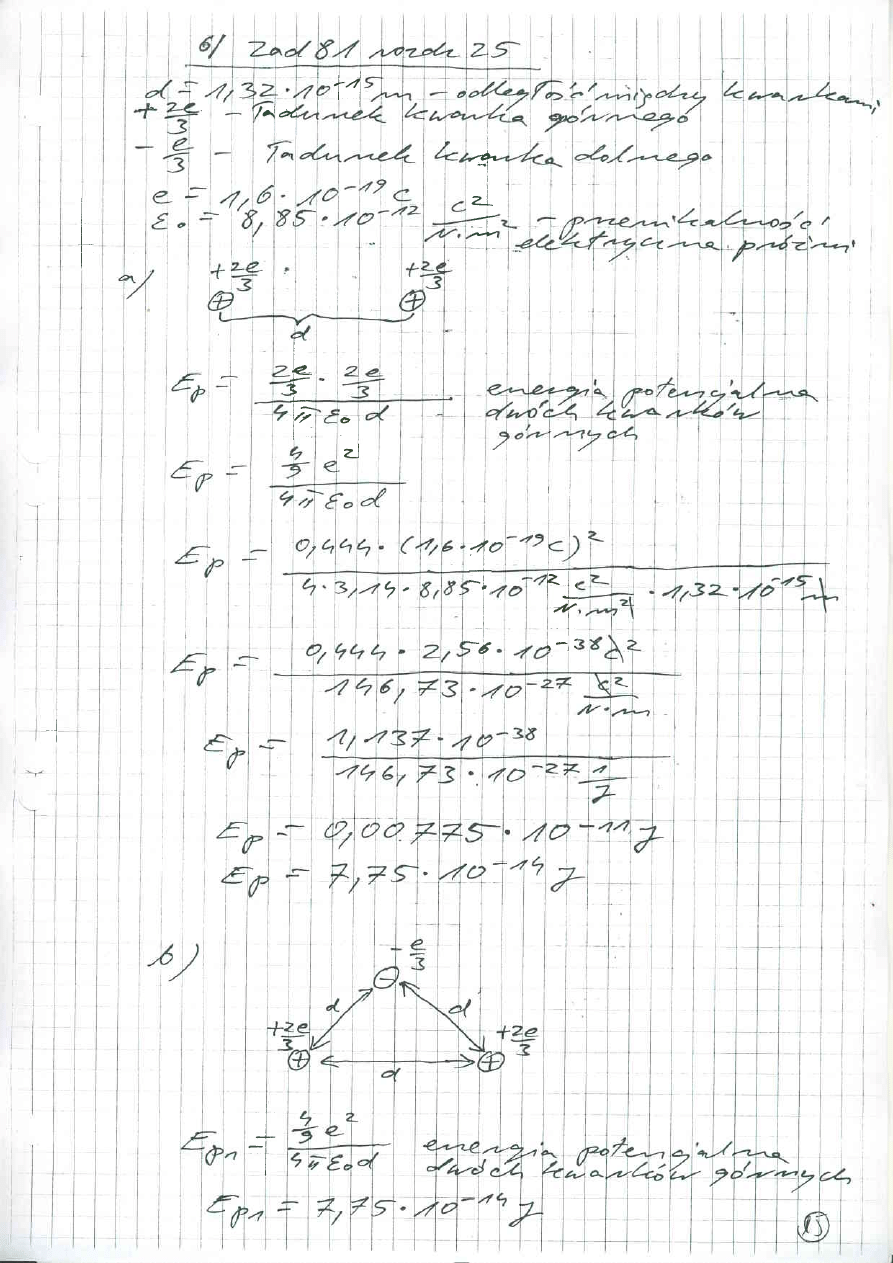 6/ Zad 81 rozdz 25
d = 1,32 · 10⁻¹⁵ m – odległość między kwarkami
+ 2e/3 – ładunek kwarka górnego
– e/3 – ładunek kwarka dolnego
e = 1,6 · 10⁻¹⁹ C
ε₀ = 8,85 · 10⁻¹² C²/N·m² – przenikalność
elektryczna próżni
a/ +2e/3 +2e/3
⊕ ⊕
d
Ep = (2e/3 · 2e/3)/(4πε₀d) energia potencjalna
dwóch kwarków
górnych
Ep = (4/9 e²)/(4πε₀d)
Ep = (0,444 · (1,6 · 10⁻¹⁹ C)²)/(4 · 3,14 · 8,85 · 10⁻¹² C²/N·m² · 1,32 · 10⁻¹⁵ m)
Ep = (0,444 · 2,56 · 10⁻³⁸ C²)/(146,73 · 10⁻²⁷ C²/N·m)
Ep = (1,137 · 10⁻³⁸)/(146,73 · 10⁻²⁷ 1/J)
Ep = 0,00775 · 10⁻¹¹ J
Ep = 7,75 · 10⁻¹⁴ J
b) – e/3
⊖
d d
+2e/3 +2e/3
⊕ ⊕
d
Ep₁ = (4/9 e²)/(4πε₀d) energia potencjalna
dwóch kwarków górnych
Ep₁ = 7,75 · 10⁻¹⁴ J
15